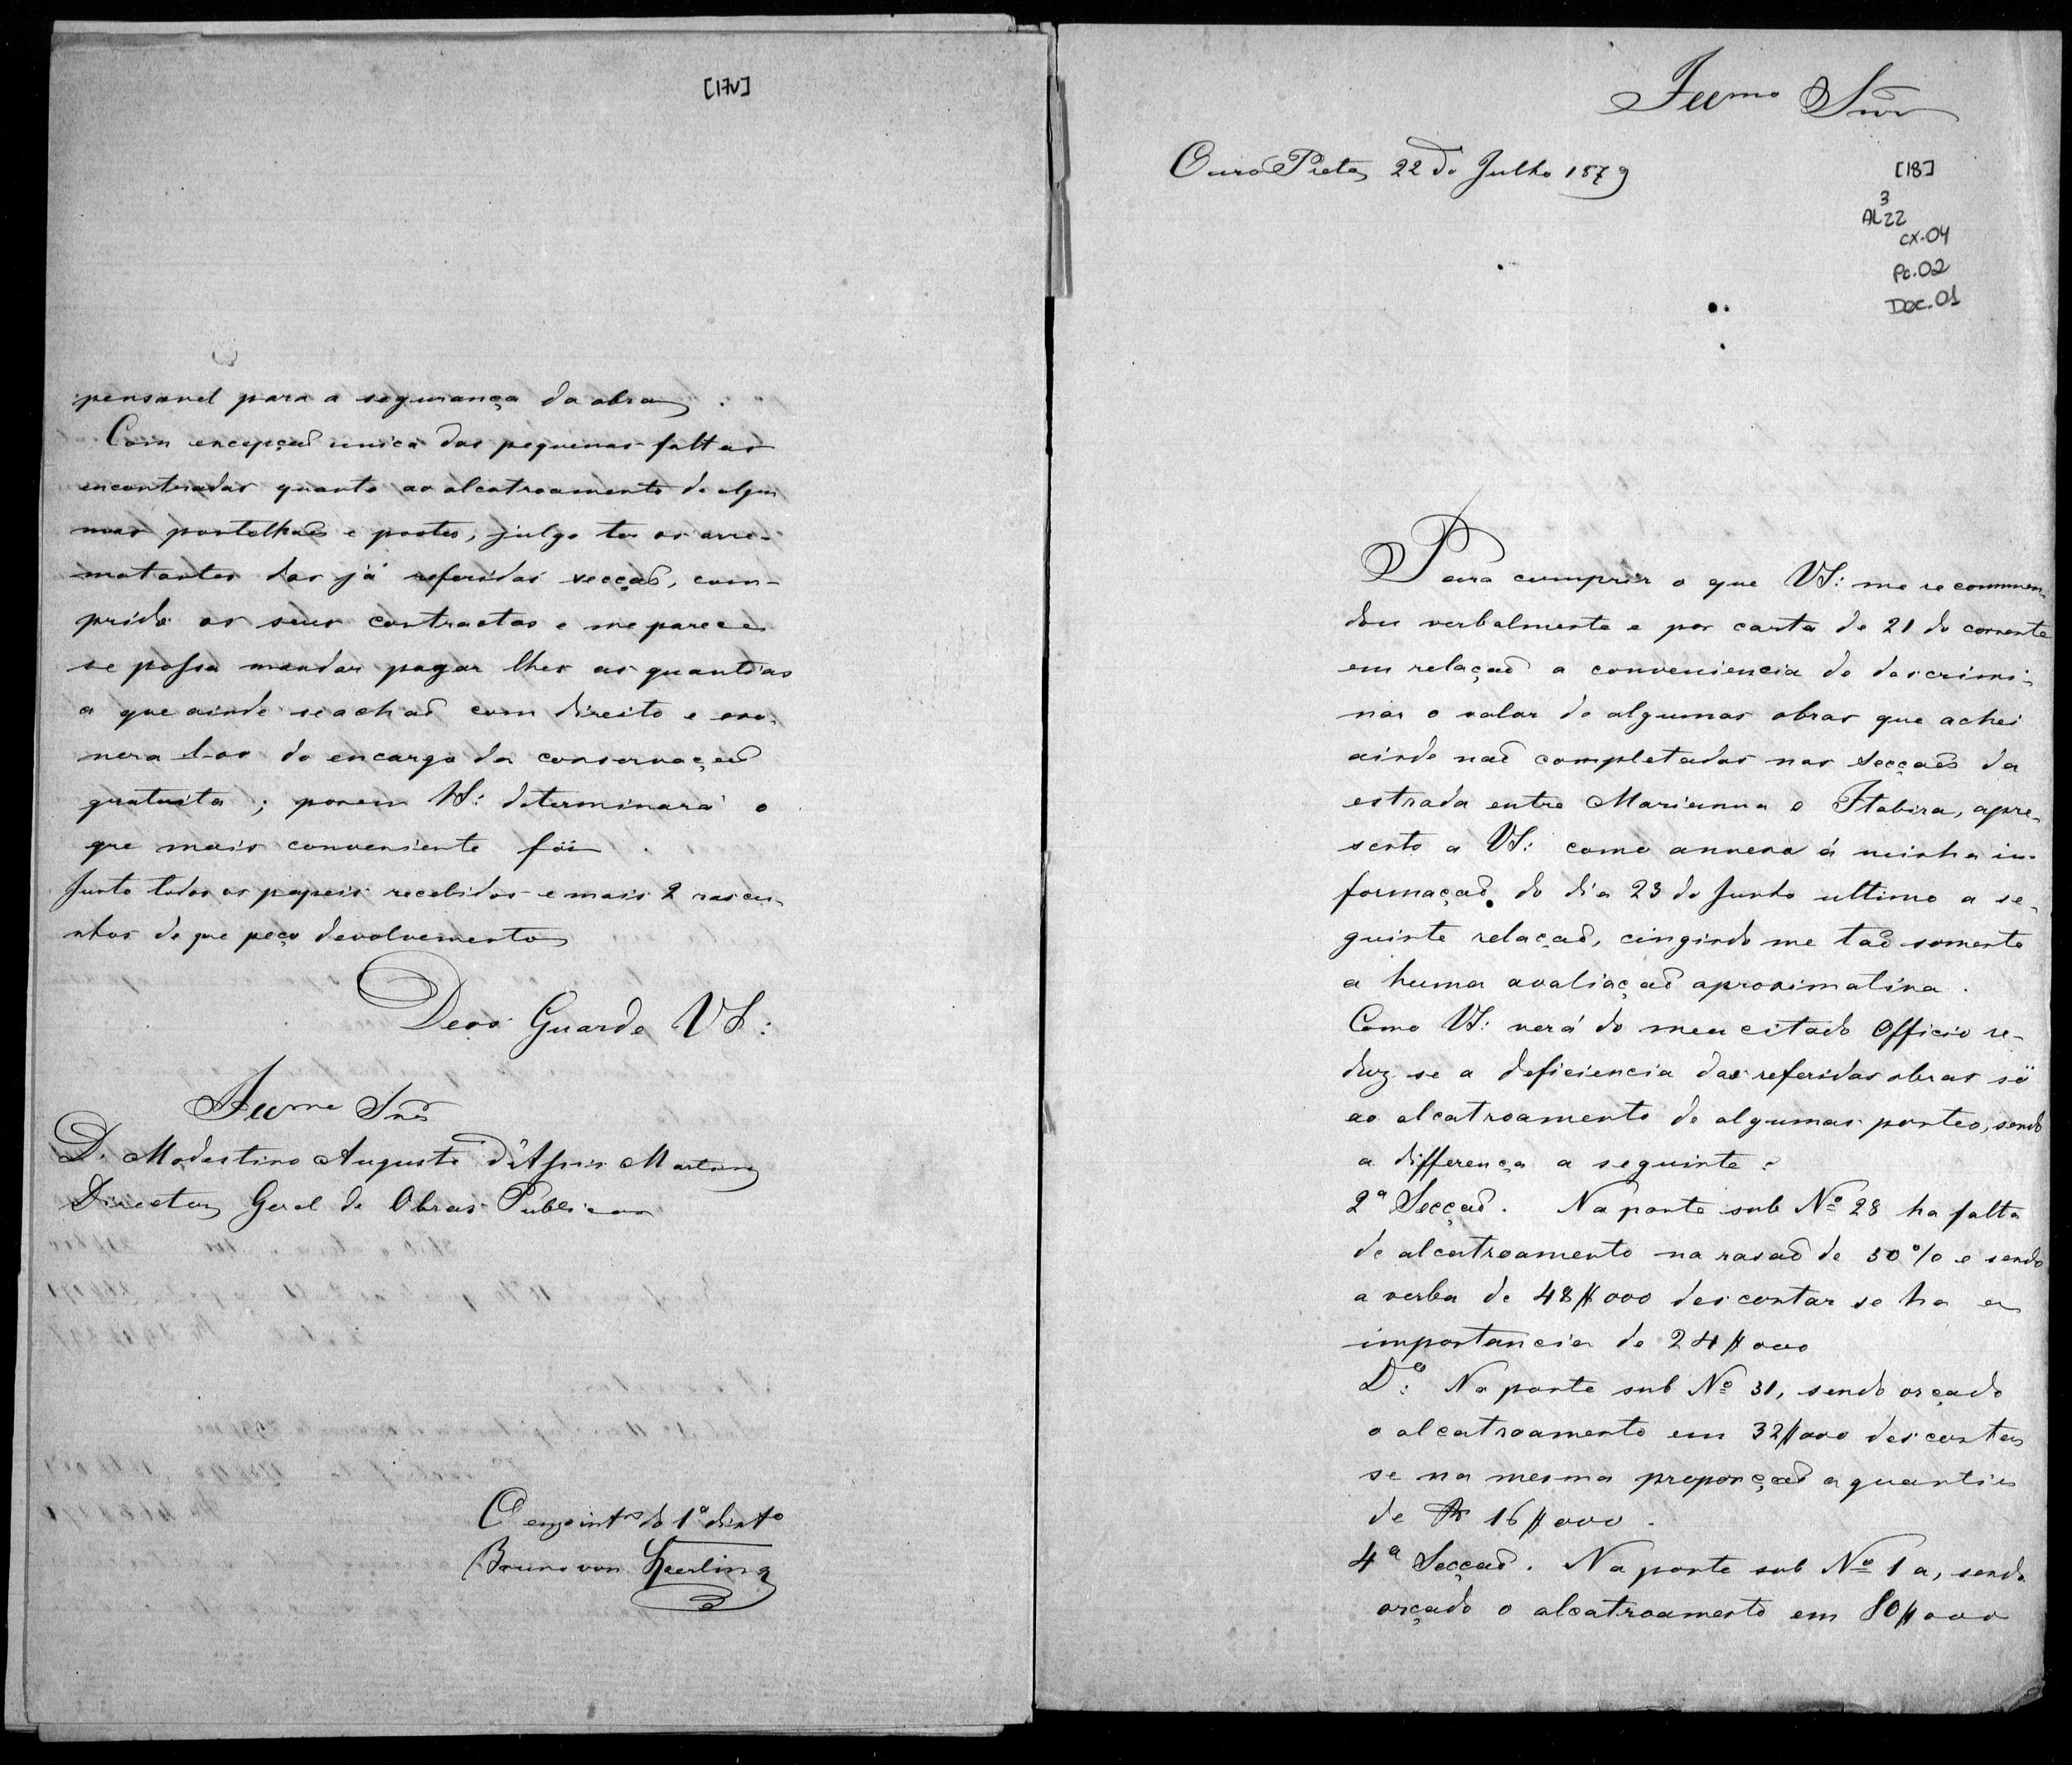 [17v]
pensavel para a segurança da obra.
Com excepçaõ unica das pequenas faltas
encontradas quanto ao alcatroamento de algu
mas pontelhoẽs e pontes, julgo ter os arre-
matantes das já referidas secçoẽs, com-
prido os seus contractos e me parece
se possa mandar pagar lhes as quantias
a que ainda se achaõ com direito e exo-
nera l-os do encargo da conservaçaõ
gratuita; porem VS: determinará o
que mais conveniente fôr.
Junto todos os papeis recebidos e mais 2 rascu-
nhos de que peço devolvemento
Deos Guarde VS:
Illmo Snr
D. Modestino Augusto d'Assis Martins
Director Geral de Obras Publicas
O engenro do 1º distto
Bruno von Sperling
Illmo Snr
Ouro Preto, 22 de Julho 1879
[18]
3
AL 22
CX.04
Pc.02
Doc.01
Para cumprir o que VS: me recommen-
dou verbalmente e por carta de 21 do corrente
em relaçaõ a conveniencia de descrimi-
nar o valor de algumas obras que achei
ainda naõ completadas nas Secçoẽs da
estrada entre Marianna e Itabira, apre-
sento a VS: como annexo á minha in-
formaçaõ do dia 23 de Junho ultimo a se-
guinte relaçaõ, cingindo me taõ somente
a huma avaliaçaõ aproximativa.
Como VS: verá do meu citado Officio re-
duz se a deficiencia das referidas obras só
ao alcatroamento de algumas pontes, sendo
a differença a seguinte:
2ª Secçaõ. Na ponte sub Nº 28 ha falta
de alcatroamento na rasaõ de 50% e sendo
a verba de 48$000 descontar se ha a
importancia de 24$000
Dº: Na ponte sub Nº 31, sendo orçado
o alcatroamento em 32$000 descontar
se na mesma proporçaõ a quantia
de Rs 16$000.
4ª Secçaõ. Na ponte sub Nº 1 a, sendo
orçado o alcatroamento em 80$000